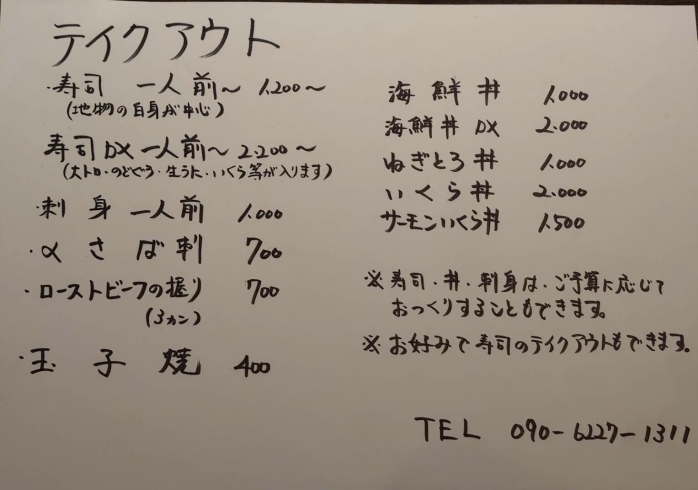 テイクアウト
・寿司 一人前〜 1.200〜
(地物の白身が中心)
寿司DX一人前〜 2.200〜
(大トロ・のどぐろ・生うに・いくら等が入ります)
・刺身 一人前 1.000
・〆さば刺 700
・ローストビーフの握り 700
(3カン)
・玉子焼 400
海鮮丼 1.000
海鮮丼DX 2.000
ねぎとろ丼 1.000
いくら丼 2.000
サーモンいくら丼 1.500
※寿司・丼・刺身は・ご予算に応じて
おつくりすることもできます。
※お好みで寿司のテイクアウトもできます。
TEL 090-6227-1311